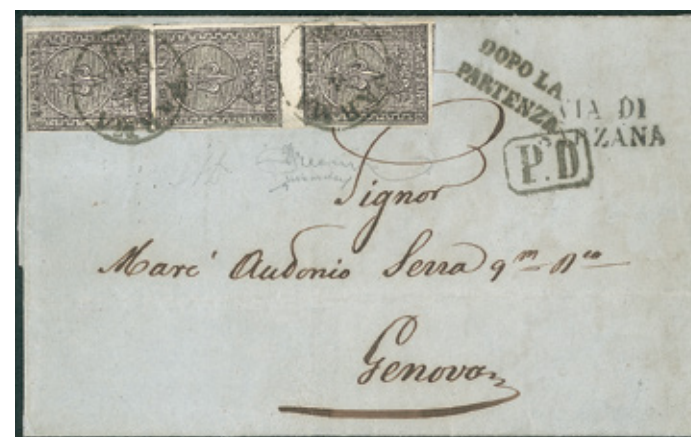 DOPO LA
PARTENZA
VIA DI
SARZANA
P.D
Signor
Marc' Antonio Serra q.m
Genova
PARMA